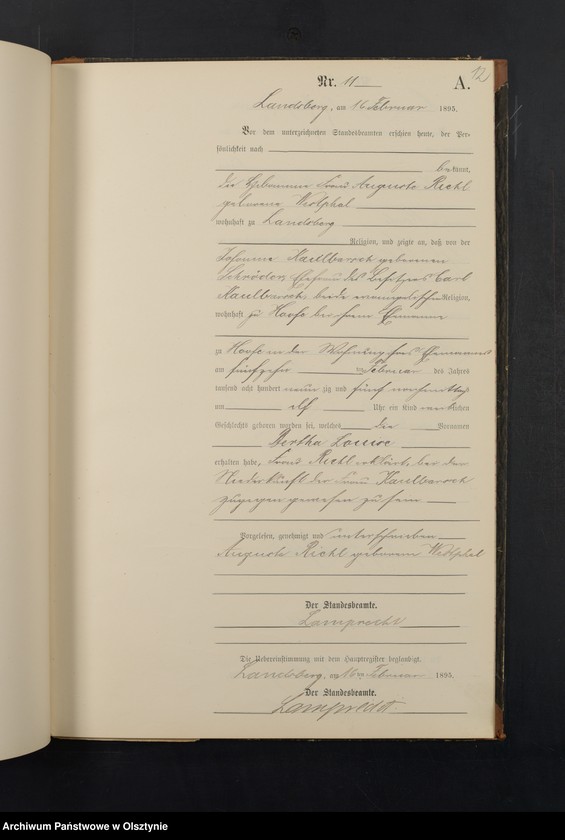 12
Nr. 11
A.
Landsberg, am 16 Februar 1895.
Vor dem unterzeichneten Standesbeamten erschien heute, der Per-
sönlichkeit nach
bekannt,
die Hebamme Frau Auguste Riehl
geborene Westphal
wohnhaft zu Landsberg
Religion, und zeigte an, daß von der
Johanne Kaulbarsch geborenen
Schröder, Ehefrau des Besitzers Carl
Kaulbarsch, beide evangelischer Religion,
wohnhaft zu Hoofe bei ihrem Ehemanne
zu Hoofe in der Wohnung ihres Ehemannes
am fünfzehn ten Februar des Jahres
tausend acht hundert neun zig und fünf vormittags
um elf Uhr ein Kind weiblichen
Geschlechts geboren worden sei, welches die Vornamen
Bertha Louise
erhalten habe, Frau Riehl erklärt, bei der
Niederkunft der Frau Kaulbarsch
zugegen gewesen zu sein
Vorgelesen, genehmigt und unterschrieben
Auguste Riehl geborene Westphal
Der Standesbeamte.
Lamprecht
Die Uebereinstimmung mit dem Hauptregister beglaubigt.
Landsberg, am 16 Februar 1895.
Der Standesbeamte.
Lamprecht
Archiwum Państwowe w Olsztynie